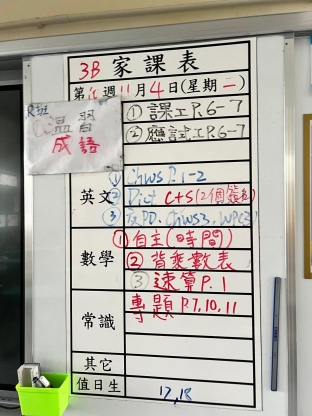 3B 家課表
第 週11月4日(星期二)
R班
溫習
成語
①課工P.6-7
②應試工P.6-7
英文
① Chws P.1-2
② Dict C+S(2個簽名)
③ Chws3, WPC2)
數學
①自主(時間)
②背乘數表
③速算P.1
常識
專題P.7,10,11
其它
值日生
17,18